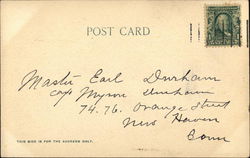 POST CARD
Master Earl Durham
c/o Myron Durham
74. 76. Orange Street
New Haven
Conn
THIS SIDE IS FOR THE ADDRESS ONLY.